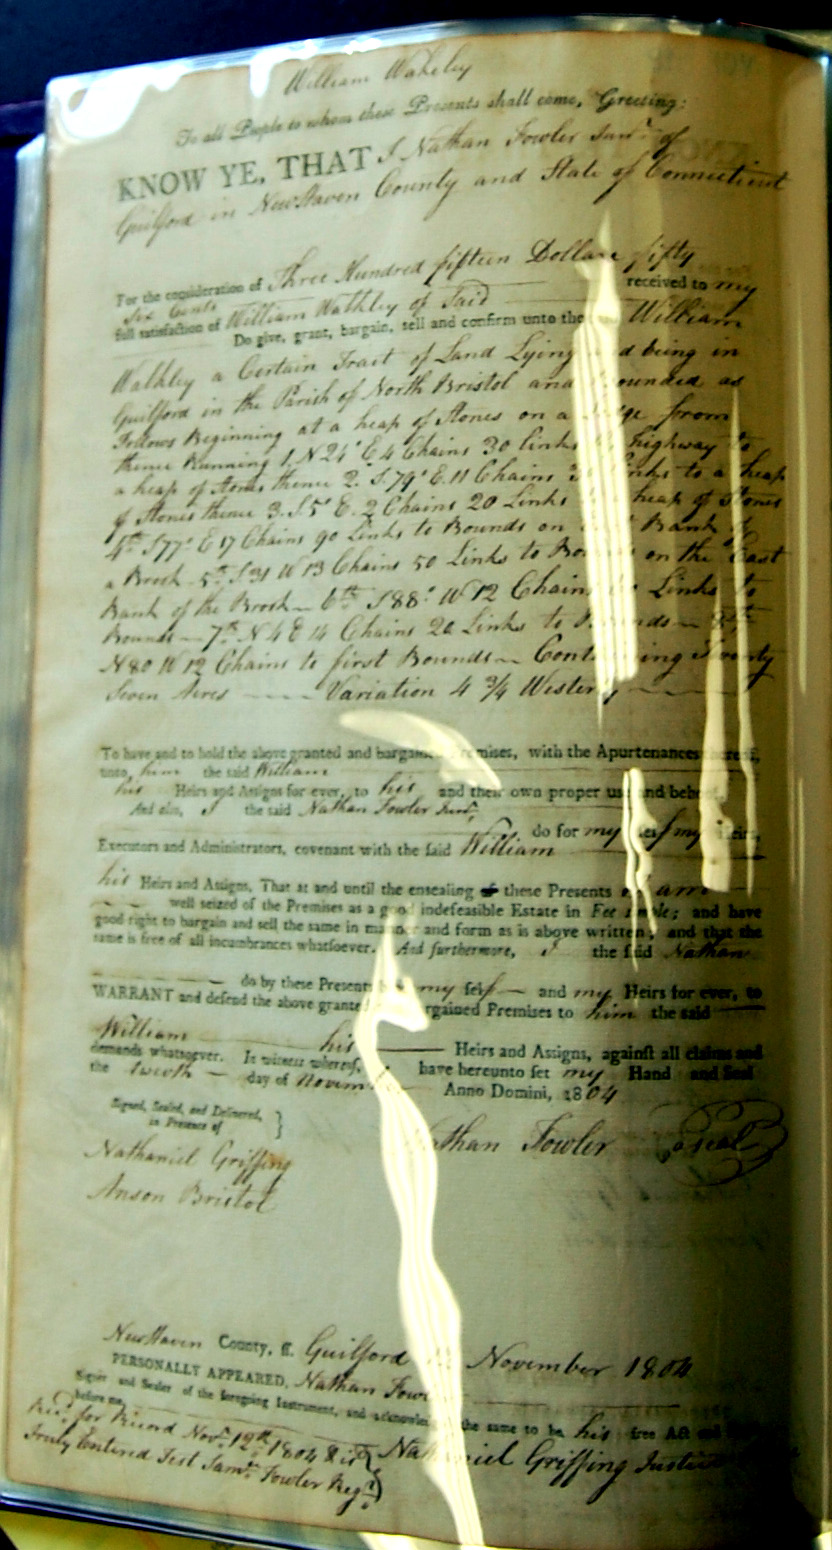 William Wakeley
To all People to whom these Presents shall come, Greeting:
KNOW YE, THAT I Nathan Fowler Junr. of
Guilford in NewHaven County and State of Connecticut
For the consideration of Three Hundred fifteen Dollars fifty
Six Cents received to my
full satisfaction of William Wakley of Said
Do give, grant, bargain, sell and confirm unto the William
Wakley a Certain Tract of Land Lying and being in
Guilford in the Parish of North Bristol and Bounded as
Follows Beginning at a heap of Stones on a from
thence Running 1. N 24° E 4 Chains 30 links highway to
a heap of Stones thence 2. S. 79° E. 11 Chains Links to a heap
of Stones thence 3. S 5° E. 2 Chains 20 Links heap of Stones
4th S 77° E 17 Chains 90 Links to Bounds on Bank of
a Brook 5th S 31 W 13 Chains 50 Links to Bounds on the East
Bank of the Brook 6th S 88° W 12 Chains Links to
Bounds 7th N 4 E 14 Chains 20 Links to Bounds 8th
N 80 W 12 Chains to first Bounds Containing Twenty
Seven Acres Variation 4 3/4 Westerly
To have and to hold the above granted and bargained Premises, with the Apurtenances thereof,
unto him the said William
his Heirs and Assigns for ever, to his and their own proper use and behoof.
And also, I the said Nathan Fowler Junr.
do for my self my Heirs,
Executors and Administrators, covenant with the said William
his Heirs and Assigns, That at and until the ensealing of these Presents I am
well seized of the Premises as a good indefeasible Estate in Fee simple; and have
good right to bargain and sell the same in manner and form as is above written; and that the
same is free of all incumbrances whatsoever. And furthermore, I the said Nathan
do by these Presents my self and my Heirs for ever, to
WARRANT and defend the above granted bargained Premises to him the said
William his Heirs and Assigns, against all claims and
demands whatsoever. In witness whereof, have hereunto set my Hand and Seal
the day of November Anno Domini, 1804
Signed, Sealed, and Delivered,
in Presence of
Nathan Fowler Seal
Nathaniel Griffing
Anson Bristol
NewHaven County, ss. Guilford November 1804
PERSONALLY APPEARED, Nathan Fowler
Signer and Sealer of the foregoing Instrument, and acknowledged the same to be his free Act and
before me,
Nathaniel Griffing Justice
Recd. for Record Novr. 12th 1804 & is
Truly Entered Test Saml. Fowler Regr.